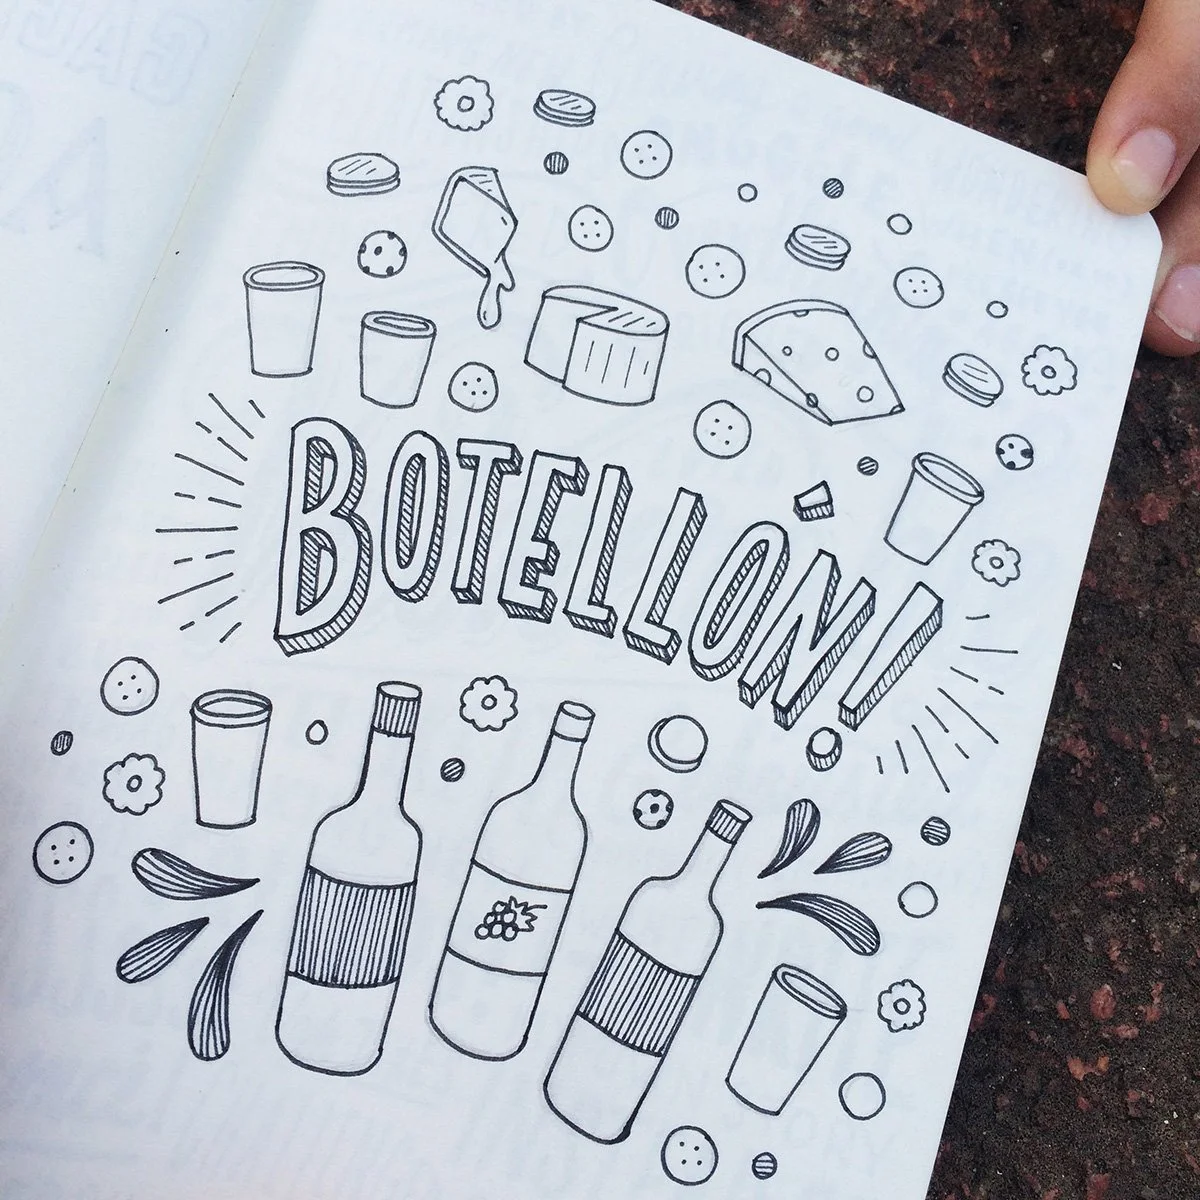 BOTELLÓN!